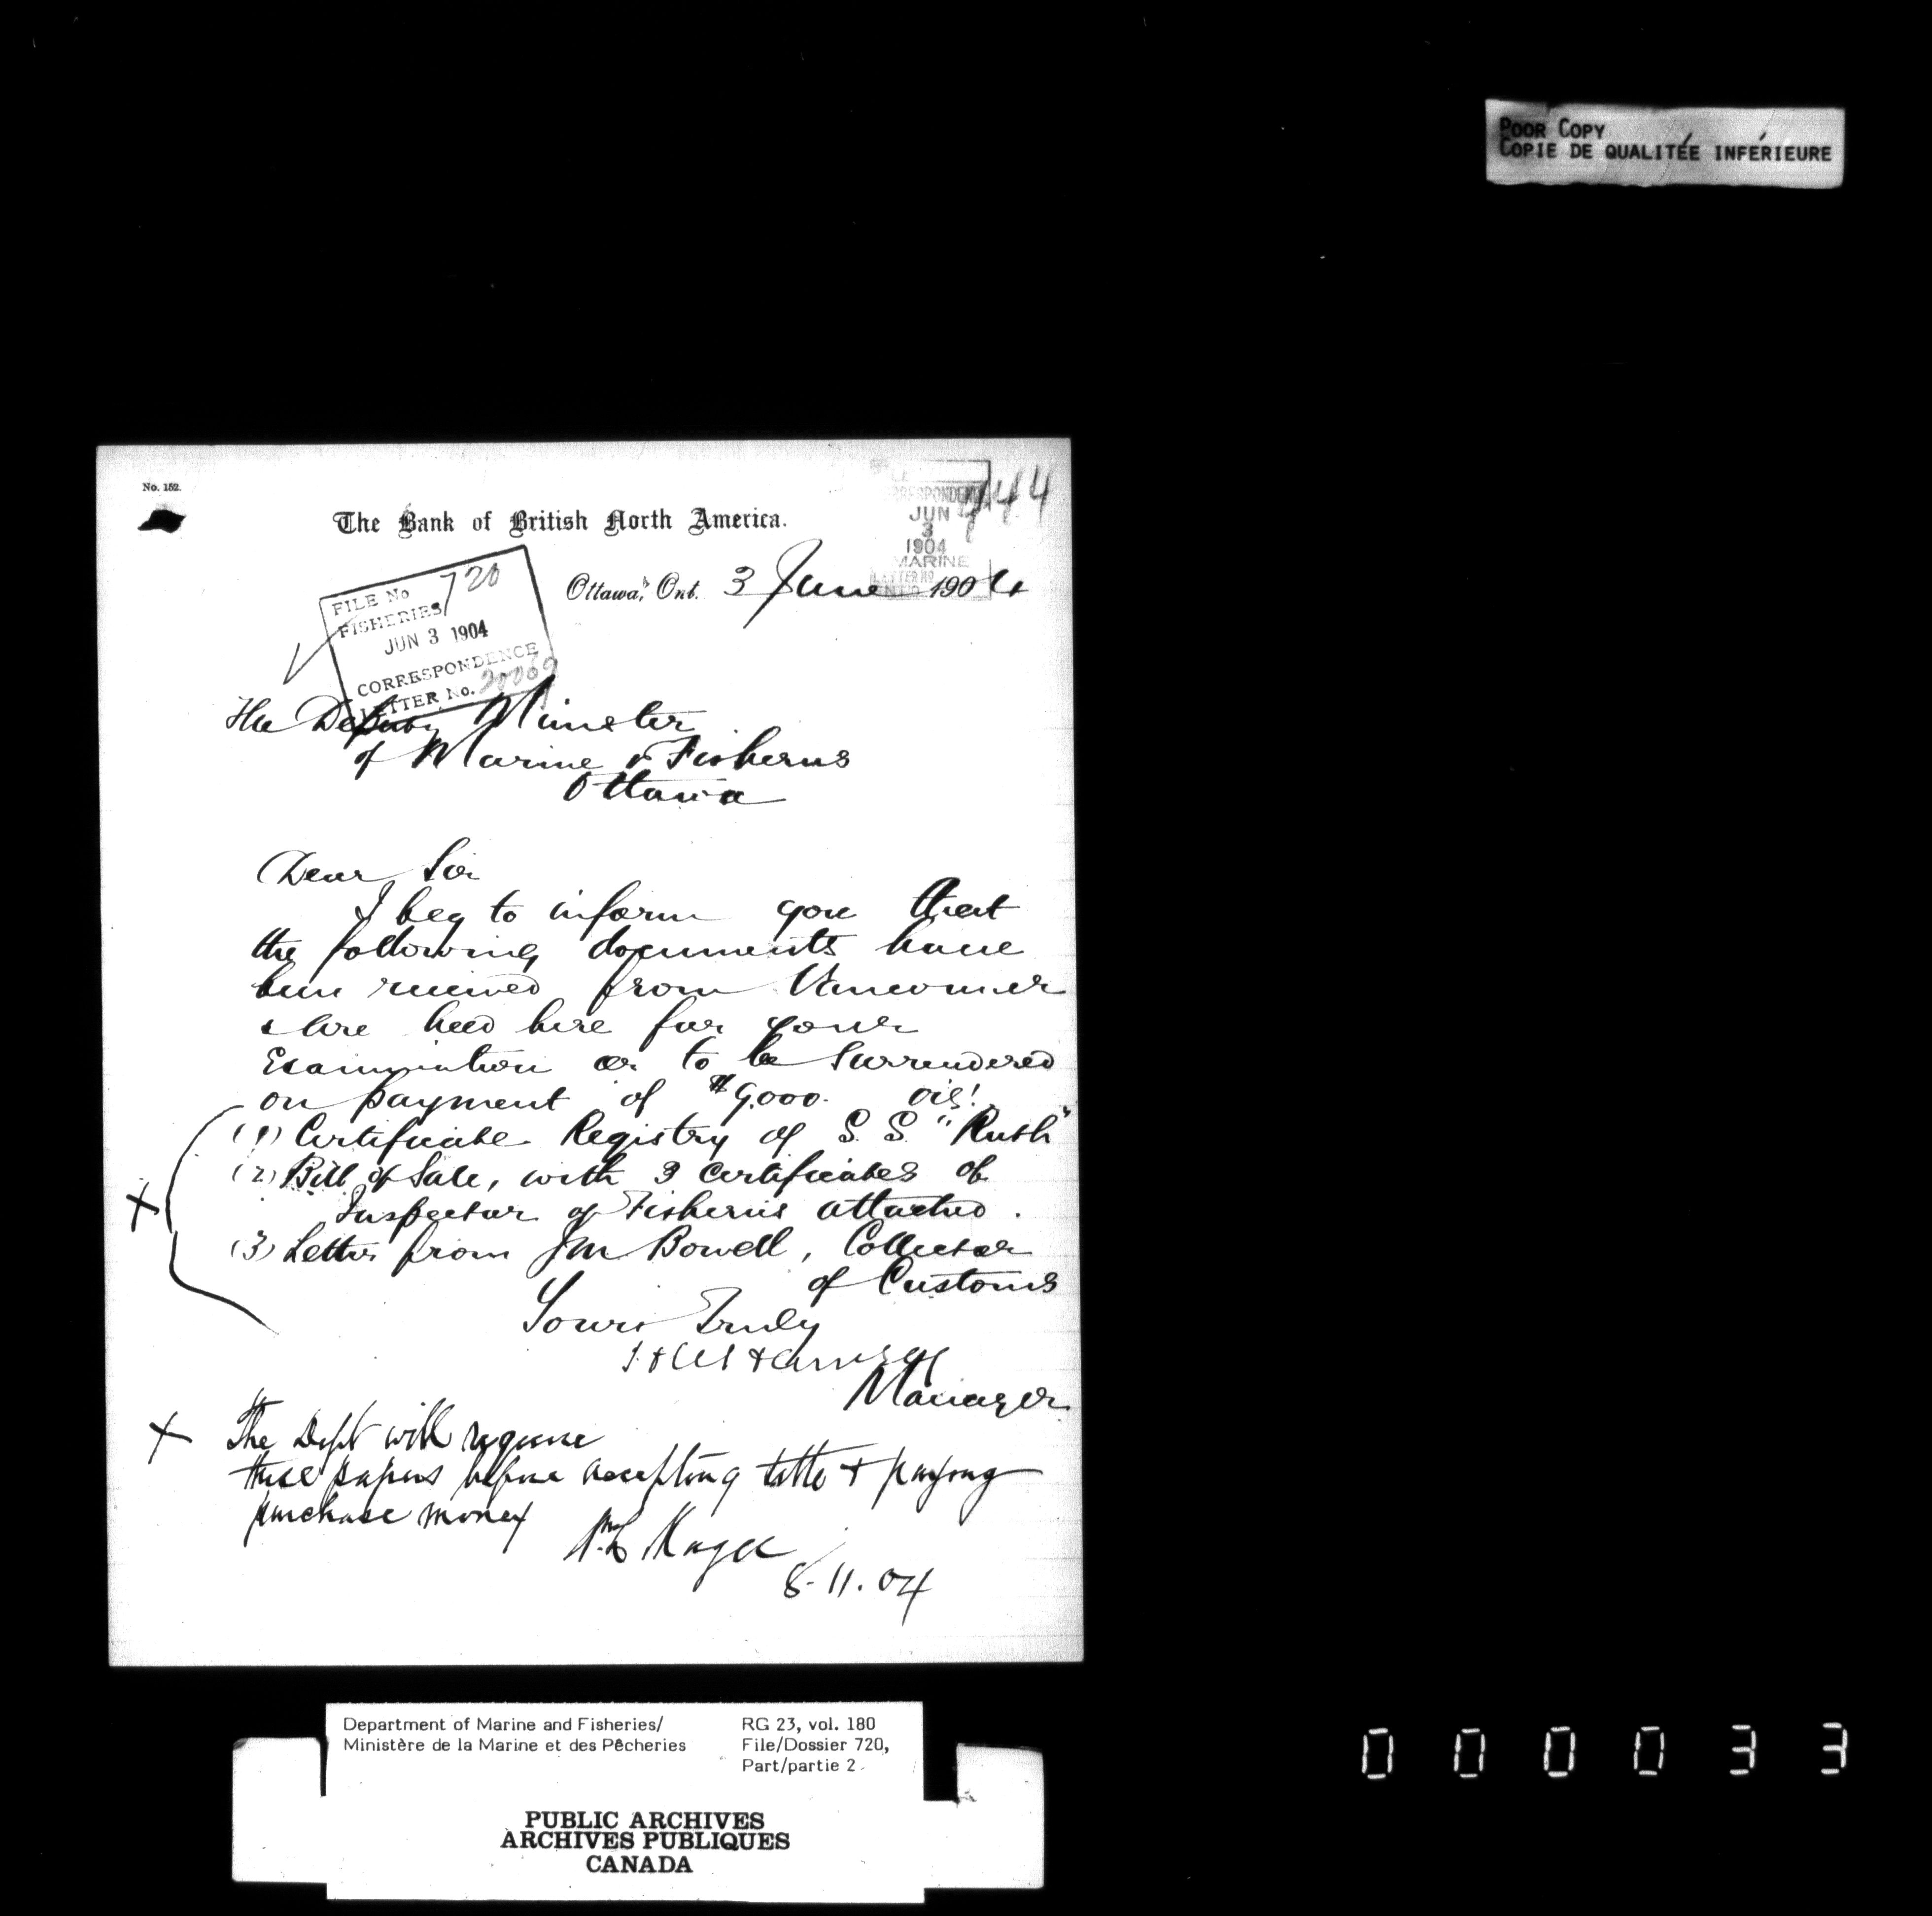 POOR COPY
COPIE DE QUALITÉE INFÉRIEURE
No. 152.
The Bank of British North America.
JUN
3
1904
MARINE
LETTER No
444
Ottawa, Ont. 3 June 1904
FILE No 720
FISHERIES
JUN 3 1904
CORRESPONDENCE
LETTER No. 20069
The Deputy Minister
of Marine & Fisheries
Ottawa
Dear Sir
I beg to inform you that
the following documents have
been received from Vancouver
& are held here for your
Examination or to be surrendered
on payment of $9,000. viz!
(1) Certificate Registry of S. S. "Ruth"
(2) Bill of Sale, with 3 Certificates of
Inspector of Fisheries attached.
(3) Letter from J M Bowell, Collector
of Customs
Yours Truly
Manager
X The Dept will require
these papers before accepting title & paying
purchase money
8-11.04
Department of Marine and Fisheries/
Ministère de la Marine et des Pêcheries
RG 23, vol. 180
File/Dossier 720,
Part/partie 2
PUBLIC ARCHIVES
ARCHIVES PUBLIQUES
CANADA
000033